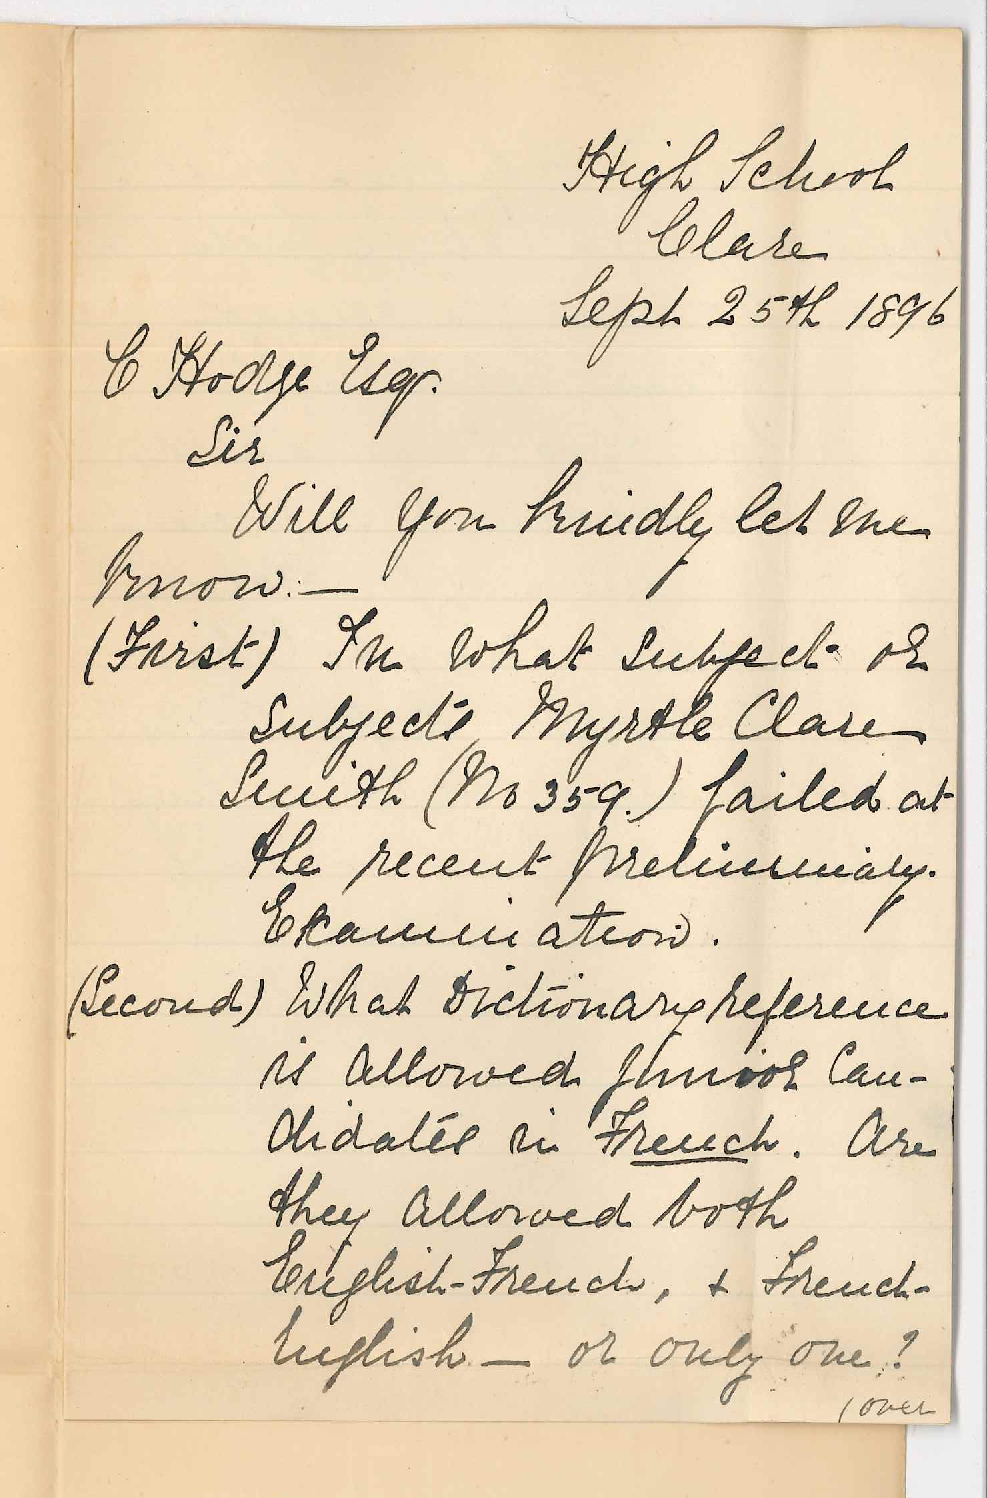 High School
Clare
Sept 25th 1896
C Hodge Esqr.
Sir
Will you kindly let me
know:—
(First) In what subject or
subjects Myrtle Clare
Smith (No 359.) failed at
the recent preliminary.
Examination.
(Second) What Dictionary reference
is allowed junior Can-
didates in French. Are
they allowed both
English-French, + French-
English — or only one?
(over